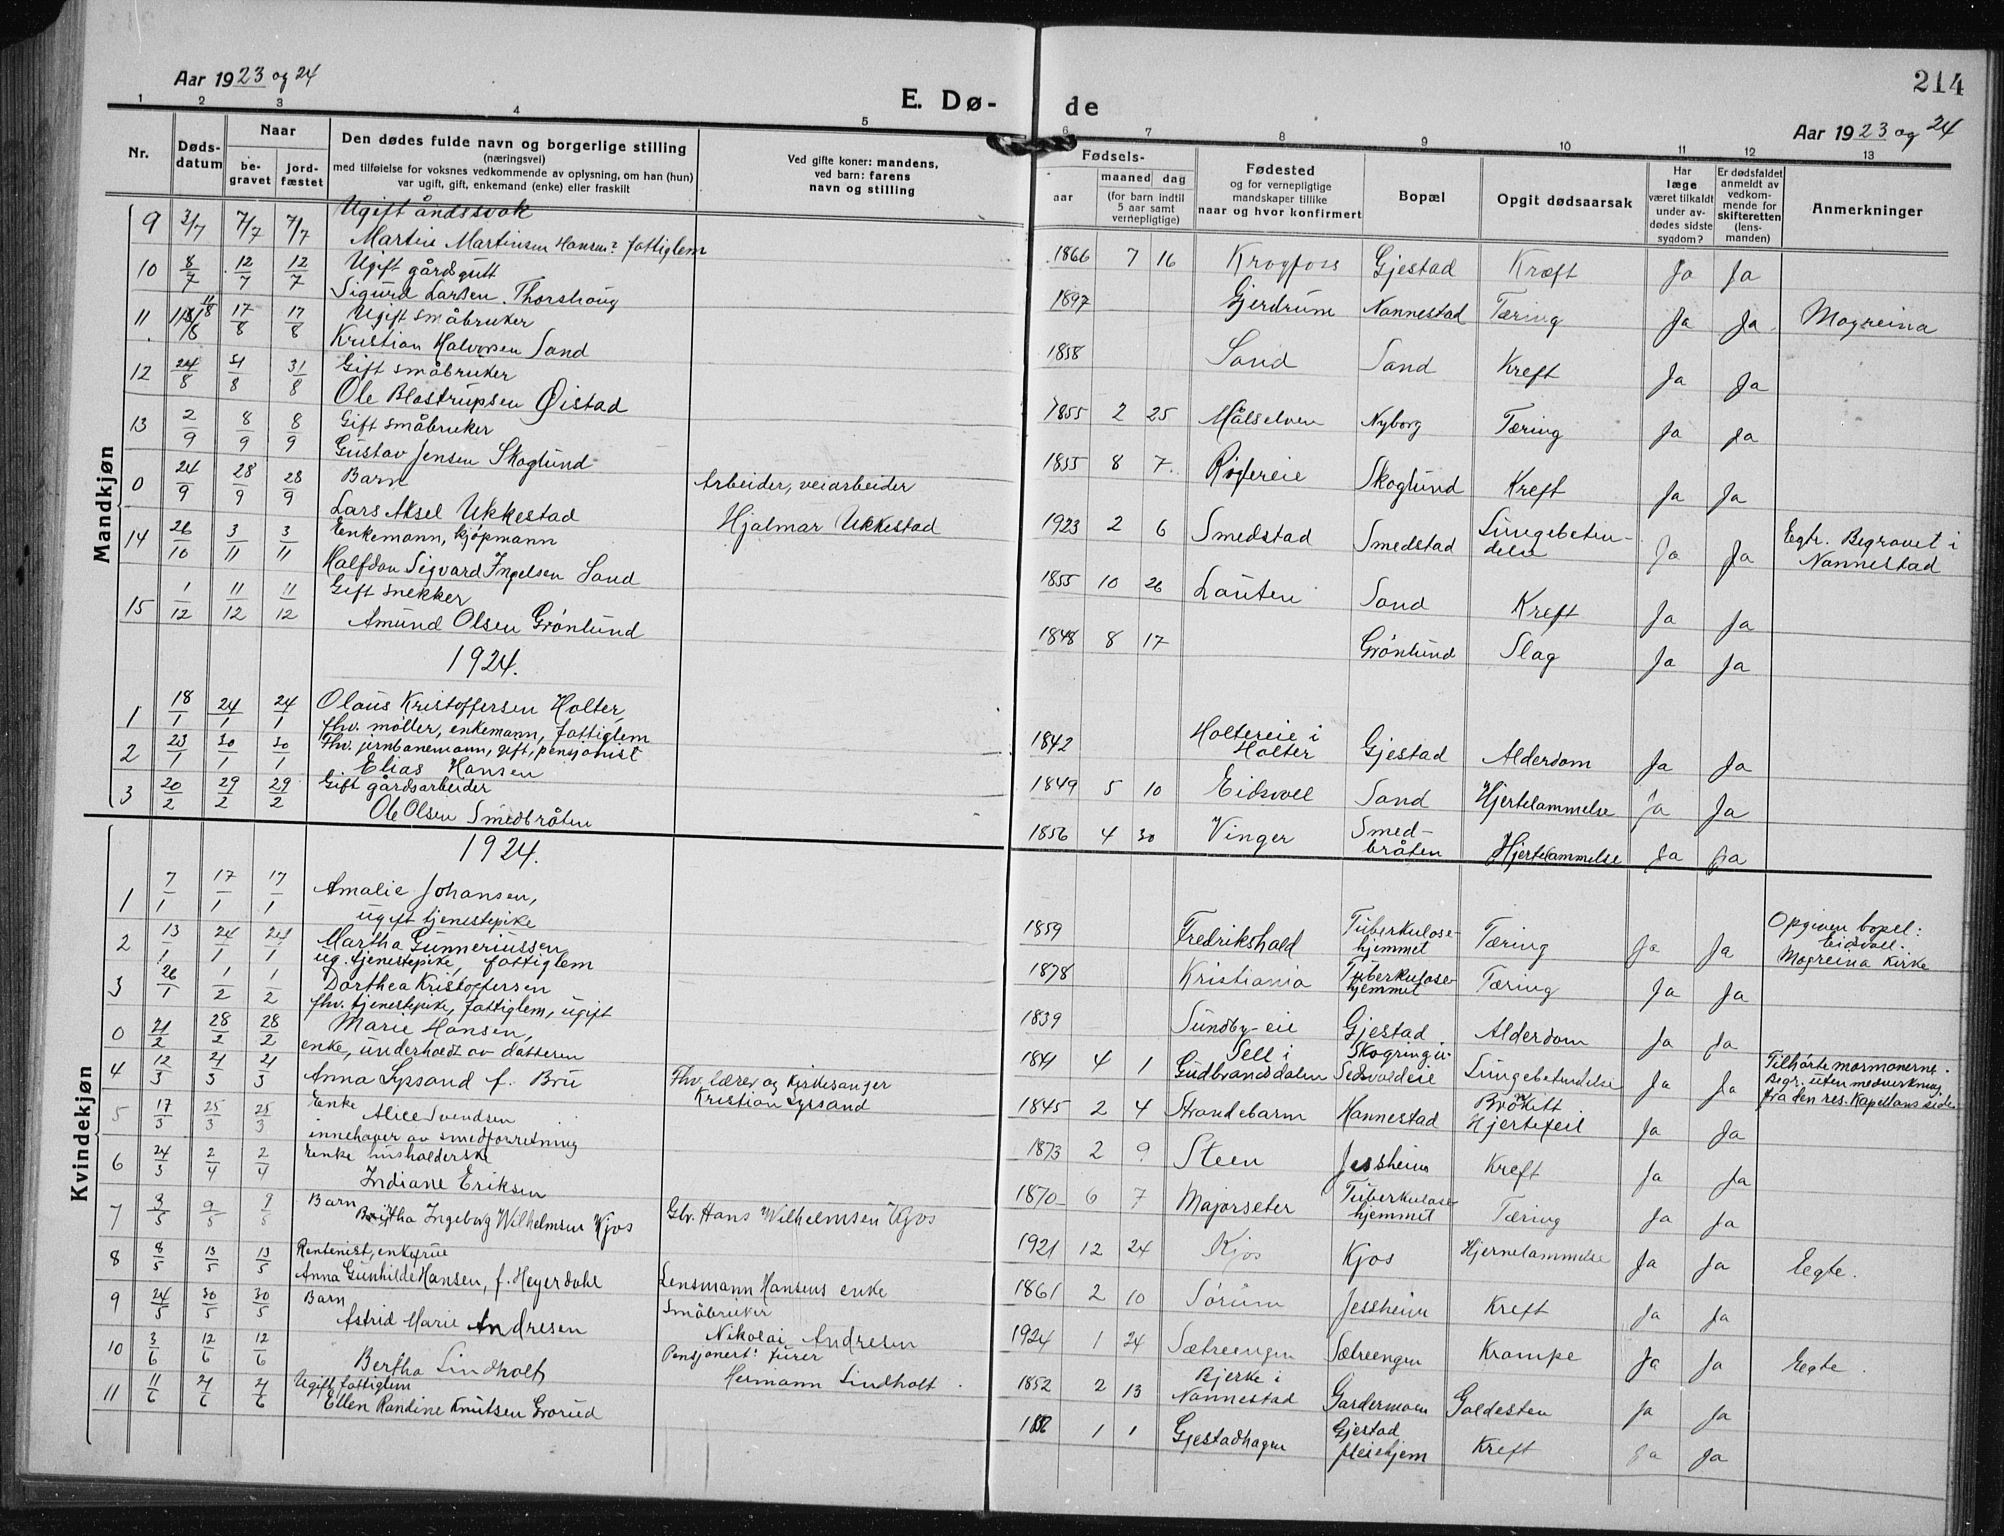 Aar 1923 og 24
E. Dø-
de
214
Aar 1923 og 24
1 2 3 4 5 6 7 8 9 10 11 12 13
Nr.
Døds-
datum
Naar
be-
gravet
jord-
fæstet
Den dødes fulde navn og borgerlige stilling
(næringsvei)
med tilføielse for voksnes vedkommende av oplysning, om han (hun)
var ugift, gift, enkemand (enke) eller fraskilt
Ved gifte koner: mandens,
ved barn: farens
navn og stilling
Fødsels-
aar
maaned dag
(for barn indtil
5 aar samt
vernepligtige)
Fødested
og for vernepligtige
mandskaper tillike
naar og hvor konfirmert
Bopæl
Opgit dødsaarsak
Har
læge
været tilkaldt
under av-
dødes sidste
sygdom?
Er dødsfaldet
anmeldt av
vedkom-
mende for
skifteretten
(lens-
manden)
Anmerkninger
Mandkjøn
9 3/7 7/7 7/7 Ugift åndssvak
Martin Martinsen Hansen? fattiglem
1866 7 16 Krogfoss Gjestad Kræft Ja Ja
10 8/7 12/7 12/7 Ugift gårdsgutt
Sigurd Larsen Thorshaug
1897 Gjerdrum Nannestad Tæring Ja Ja Mogreina
11 11/8 17/8 17/8 Ugift småbruker
Kristian Halvorsen Sand
1858 Sand Sand Kreft Ja Ja
12 24/8 31/8 31/8 Gift småbruker
Ole Blostrupsen Øistad
1855 2 25 Målselven Nyborg Tæring Ja Ja
13 2/9 8/9 8/9 Gift småbruker
Gustav Jensen Skoglund
1855 8 7 Skoglund Kreft Ja Ja
0 24/9 28/9 28/9 Barn Arbeider, veiarbeider
Lars Aksel Ukkestad Hjalmar Ukkestad
1923 2 6 Smedstad Smedstad Lungebeten-
delse Ja Ja Egtf. Begravet i
Nannestad
14 26/10 3/11 3/11 Enkemann, kjøpmann
Halfdan Sigvard Ingelsen Sand
1855 10 26 Løuten Sand Kreft Ja Ja
15 1/12 11/12 11/12 Gift snekker
Amund Olsen Grønlund
1848 8 17 Grønlund Slag Ja Ja
1924.
1 18/1 24/1 24/1 Olaus Kristoffersen Holter,
fhv. møller, enkemann, fattiglem
1842 Holtereie i
Holter Gjestad Alderdom Ja Ja
2 23/1 30/1 30/1 Fhv. jernbanemann, gift, pensjonist
Elias Hansen
1849 5 10 Eidsvoll Sand Hjertelammelse Ja Ja
3 20/2 29/2 29/2 Gift gårdsarbeider
Ole Olsen Smedbråten
1856 4 30 Vinger Smed-
bråten Hjertelammelse Ja Ja
Kvindekjøn
1924.
1 7/1 17/1 17/1 Amalie Johansen,
ugift tjenestepike
1859 Fredrikshald Tuberkulose-
hjemmet Tæring Ja Ja Opgiven bopel:
Eidsvoll.
Mogreina Kirke
2 13/1 24/1 24/1 Martha Gunneriussen
ug. tjenestepike, fattiglem
1878 Kristiania Tuberkulose-
hjemmet Tæring Ja Ja
3 26/1 1/2 1/2 Dorthea Kristoffersen
fhv. tjenestepike, fattiglem, ugift
1839 Sundby-eie Gjestad Alderdom Ja Ja
0 21/2 28/2 28/2 Marie Hansen,
enke, underholdt av datteren
1841 4 1 Sell i
Gudbrandsdalen Lungebetendelse Ja Ja Tilhørte mormonerne.
Begr. uten medvirkning
fra den res. Kapellans side
4 12/3 21/3 21/3 Anna Lyssand f. Bru Fhv. lærer og kirkesanger
Kristian Lyssand
1845 2 4 Strandebarm Hannestad Brokitt
Hjertefeil Ja Ja
5 17/3 25/3 25/3 Enke
Alice Svendsen
innehaver av smedforretning
1873 2 9 Steen Jessheim Kreft Ja Ja
6 24/3 2/4 2/4 Enke husholderske
Indiane Eriksen
1870 6 7 Majorseter Tuberkulose-
hjemmet Tæring Ja Ja
7 3/5 9/5 9/5 Barn
Britha Ingeborg Wilhelmsen Kjos Gbr. Hans Wilhelmsen Kjos
1921 12 24 Kjos Kjos Hjernelammelse Ja Ja Egte.
8 8/5 13/5 13/5 Rentenist, enkefrue
Anna Gunhilde Hansen, f. Heyerdahl Lensmann Hansens enke
1861 2 10 Sørum Jessheim Kreft Ja Ja
9 24/5 30/5 30/5 Barn Småbruker
Astrid Marie Andresen Nikolai Andresen
1924 1 24 Sætreengen Sætreengen Krampe Ja Ja Egte.
10 3/6 12/6 12/6 Bertha Lindholt Pensjonert furer
Hermann Lindholt.
1852 2 13 Bjerke i
Nannestad Gardermoen Galdesten Ja Ja
11 11/6 21/6 21/6 Ugift, fattiglem
Ellen Randine Knutsen Grorud
1 1 Gjestadhagen Gjestad
pleiehjem Kreft Ja Ja